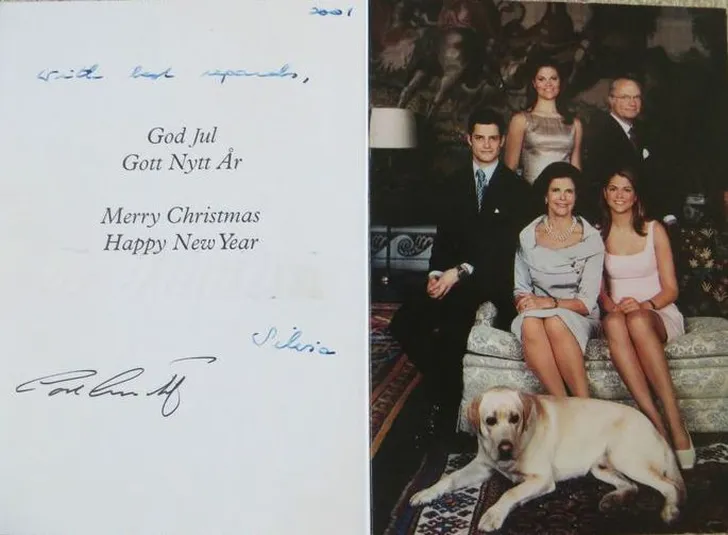 2001
With best regards,
God Jul
Gott Nytt År
Merry Christmas
Happy New Year
Silvia
Carl Gustaf